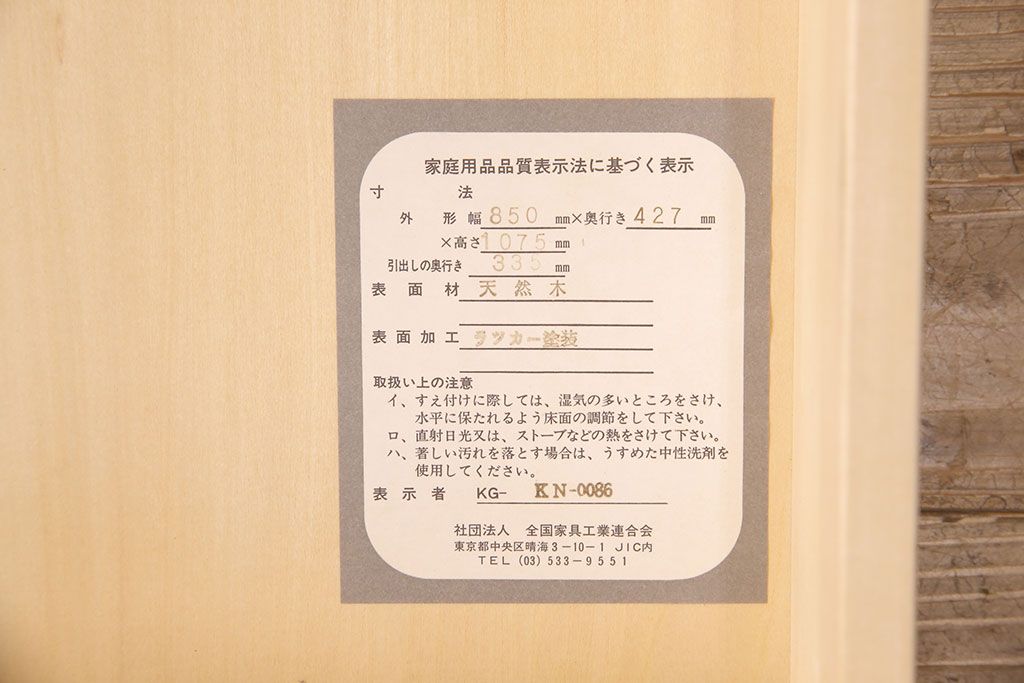 家庭用品品質表示法に基づく表示
寸法
外形 幅 850 mm×奥行き 427 mm
×高さ 1075 mm
引出しの奥行き 335 mm
表面材 天然木
表面加工 ラッカー塗装
取扱い上の注意
イ、すえ付けに際しては、湿気の多いところをさけ、
水平に保たれるよう床面の調節をして下さい。
ロ、直射日光又は、ストーブなどの熱をさけて下さい。
ハ、著しい汚れを落とす場合は、うすめた中性洗剤を
使用してください。
表示者 KG- KN-0086
社団法人 全国家具工業連合会
東京都中央区晴海3-10-1 JIC内
TEL (03) 533-9551